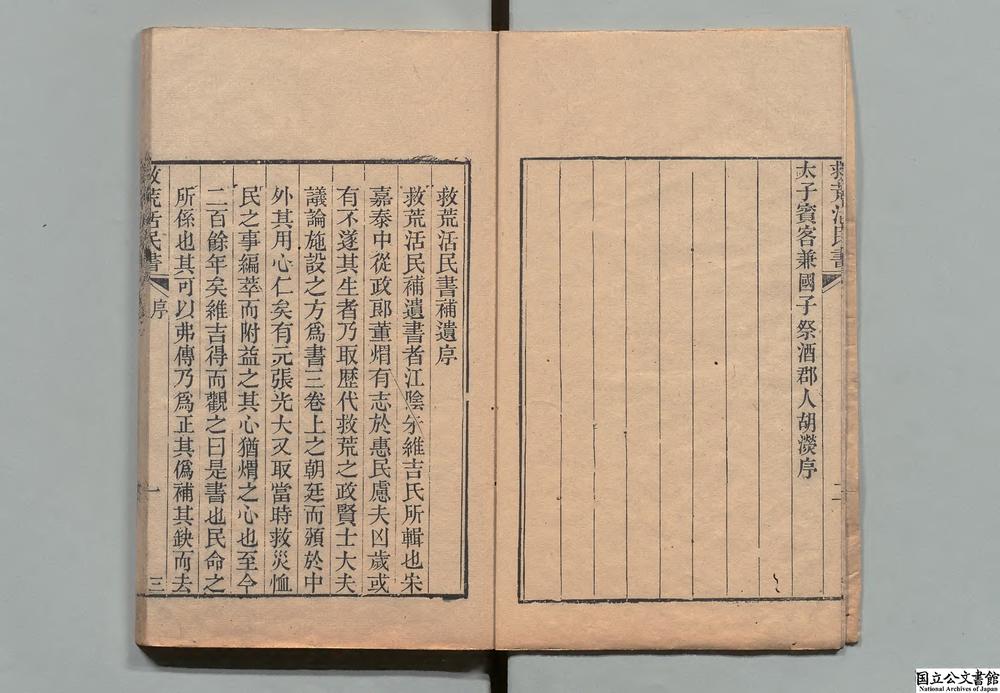 救荒活民書
太子賓客兼國子祭酒郡人胡濙序
二
救荒活民書補遺序
救荒活民補遺書者江陰朱維吉氏所輯也宋
嘉泰中從政郎董煟有志於惠民慮夫凶歲或
有不遂其生者乃取歷代救荒之政賢士大夫
議論施設之方爲書三卷上之朝廷而頒於中
外其用心仁矣有元張光大又取當時救災恤
民之事編萃而附益之其心猶煟之心也至今
二百餘年矣維吉得而觀之曰是書也民命之
所係也其可以弗傳乃爲正其譌補其缺而去
救荒活民書 序 一 三
国立公文書館
National Archives of Japan